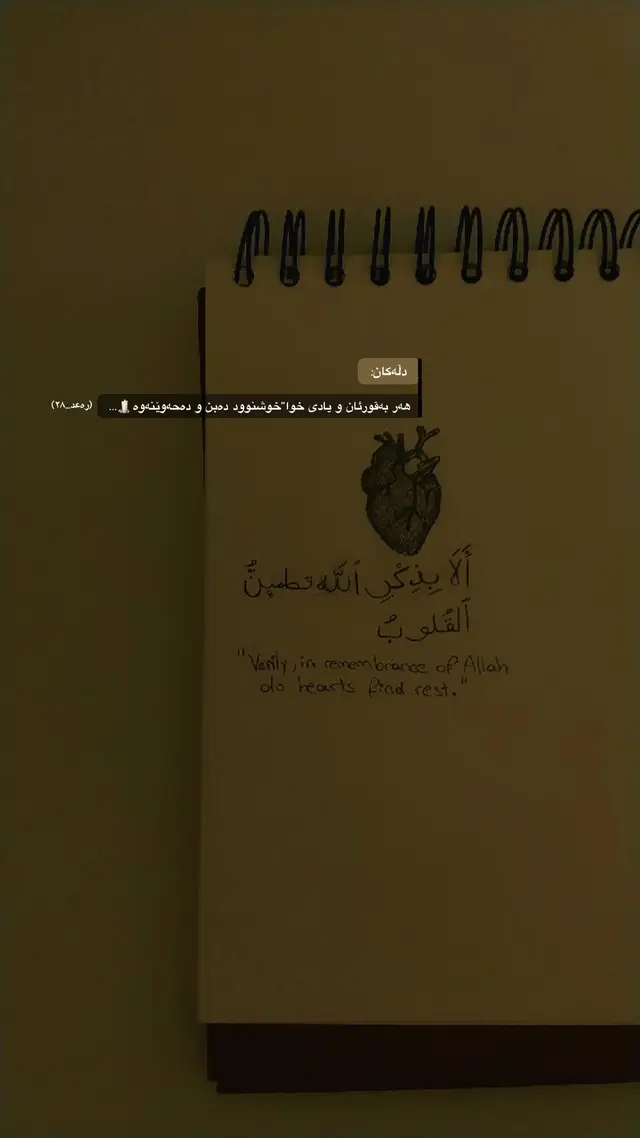 دڵەکان:
هەر بەقورئان و یادی خوا"خوشنوود دەبن و دەحەوێنەوە🕯️... (ڕەعد_٢٨)
أَلَا بِذِكْرِ ٱللَّه تطمينُّ
ٱلقُلوبُ
"Verily, in remembrance of Allah
do hearts find rest."